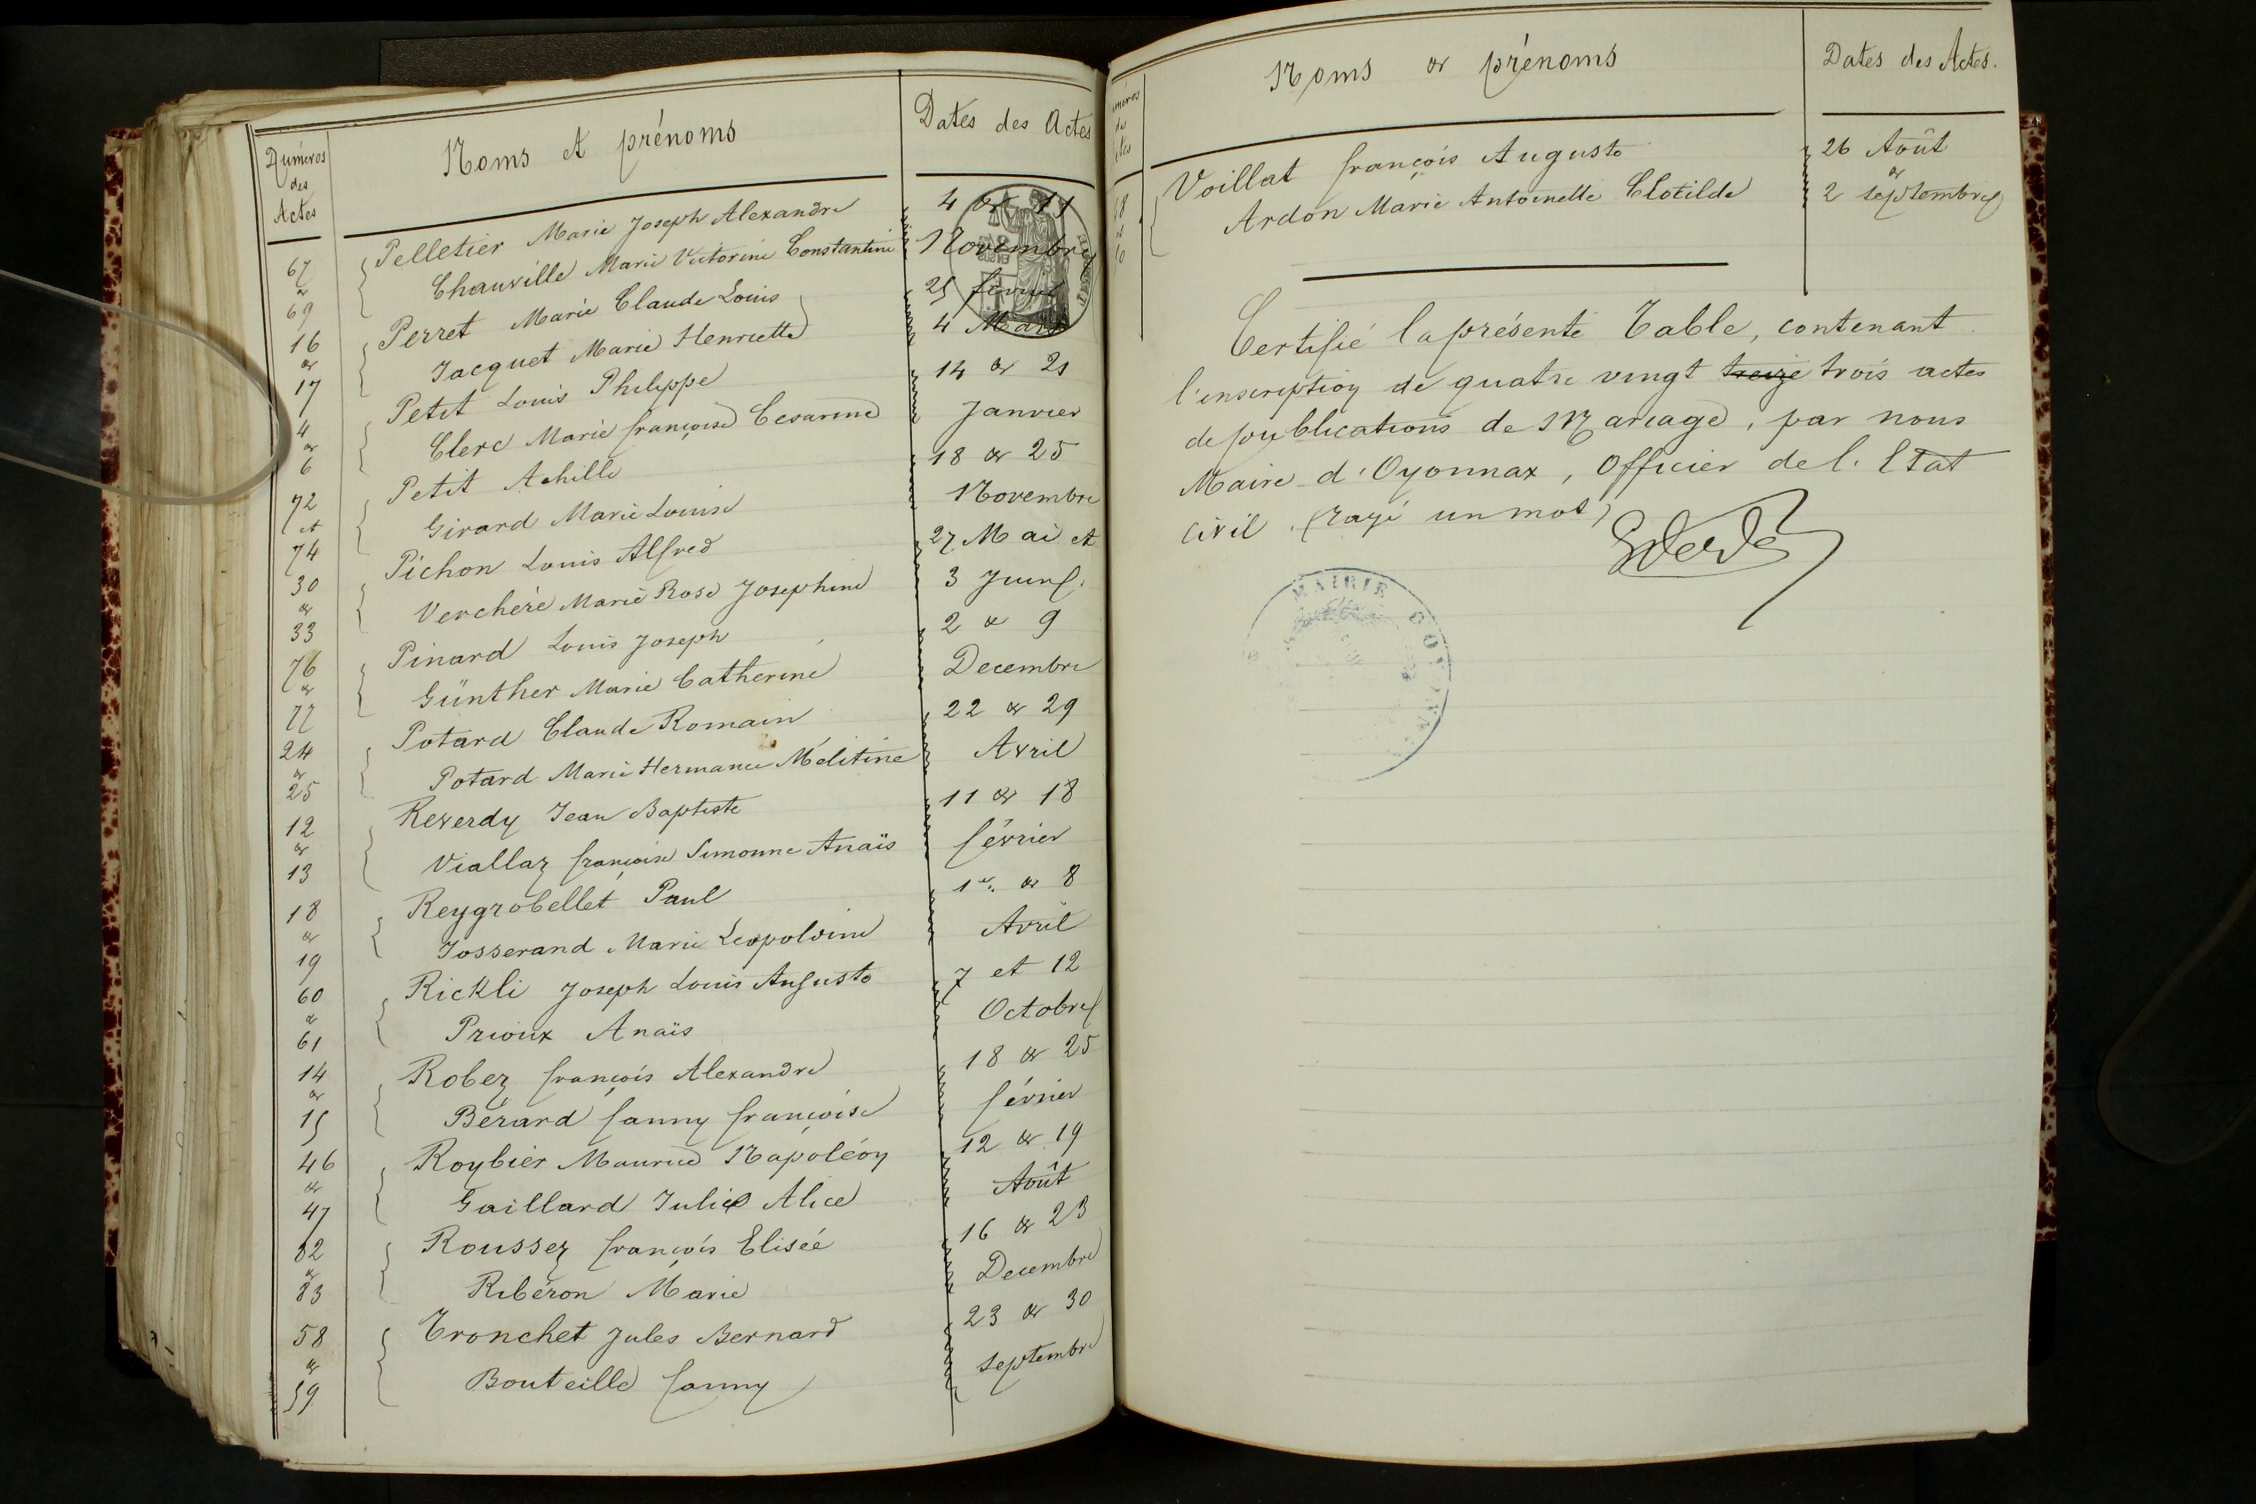 Numéros
des
Actes
Noms et prénoms
Dates des Actes
67
et
69
Pelletier Marie Joseph Alexandre
Chauville Marie Victorine Constantine
4 et 11
Novembre
16
et
17
Perret Marie Claude Louis
Jacquet Marie Henriette
25 février
4 Mars
4
et
6
Petit Louis Philippe
Clerc Marie françoise Cesarine
14 et 21
Janvier
72
et
74
Petit Achille
Girard Marie Louise
18 et 25
Novembre
30
et
33
Pichon Louis Alfred
Verchère Marie Rose Josephine
27 Mai et
3 Juin
76
et
77
Pinard Louis Joseph
Günther Marie Catherine
2 et 9
Decembre
24
et
25
Potard Claude Romain
Potard Marie Hermance Mélitine
22 et 29
Avril
12
et
13
Reverdy Jean Baptiste
Viallaz françoise Simonne Anaïs
11 et 18
février
18
et
19
Reygrobellet Paul
Josserand Marie Leopoldine
1er et 8
Avril
60
et
61
Rickli Joseph Louis Auguste
Prioux Anaïs
7 et 12
Octobre
14
et
15
Robez françois Alexandre
Bérard fanny françoise
18 et 25
février
46
et
47
Roybier Maurice Napoléon
Gaillard Julie Alice
12 et 19
Août
82
et
83
Roussez françois Elisée
Ribéron Marie
16 et 23
Decembre
58
et
59
Tronchet Jules Bernard
Bouteille fanny
23 et 30
septembre
Noms et prénoms
Dates des Actes.
Voillat françois Auguste
Ardon Marie Antoinette Clotilde
26 Août
et
2 septembre
Certifié la présente Table, contenant
l'inscription de quatre vingt treize trois actes
de publications de Mariage, par nous
Maire d'Oyonnax, Officier de l'Etat
civil. (rayé un mot)
MAIRIE